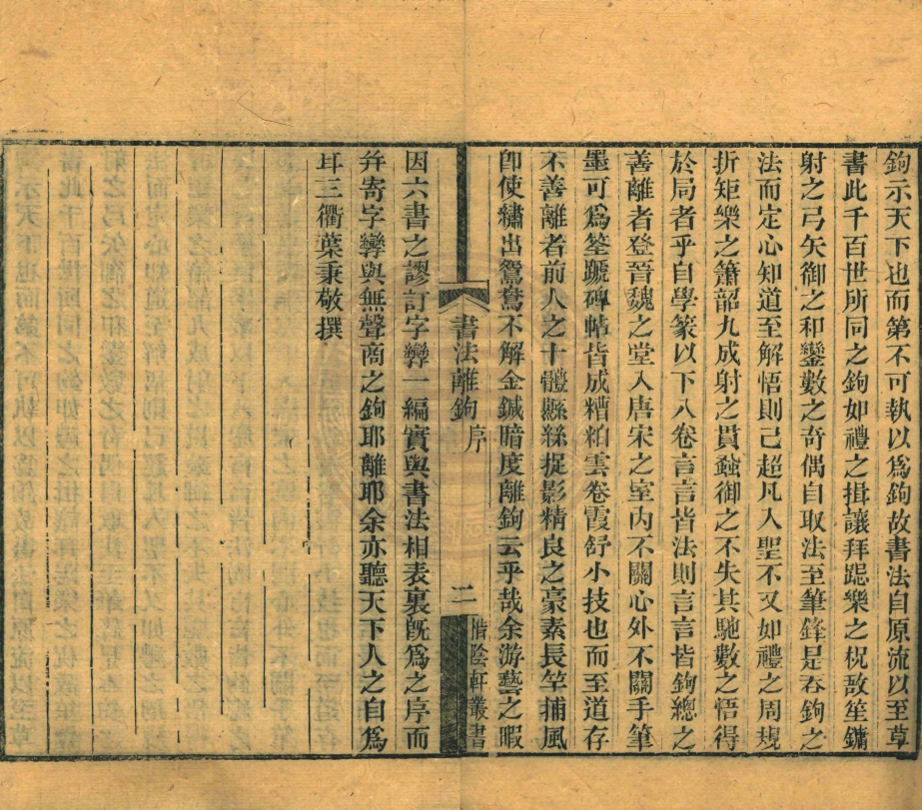 鉤示天下也而第不可執以爲鉤故書法自原流以至草
書此千百世所同之鉤如禮之揖讓拜跽樂之柷敔笙鏞
射之弓矢御之和鑾數之奇偶自取法至筆鋒是吞鉤之
法而定心知道至解悟則已超凡入聖不又如禮之周規
折矩樂之簫韶九成射之貫蝨御之不失其馳數之悟得
於局者乎自學篆以下八卷言言皆法則言言皆鉤總之
善離者登晉魏之堂入唐宋之室內不關心外不關手筆
墨可爲筌蹏碑帖皆成糟粕雲卷霞舒小技也而至道存
不善離者前人之十體縣絲捉影精良之豪素長竿捕風
卽使繡出鴛鴦不解金鍼暗度離鉤云乎哉余游藝之暇
書法離鉤 序
二
惜陰軒叢書
因六書之謬訂字孿一編實與書法相表裏旣爲之序而
幷寄字孿與無聲商之鉤耶離耶余亦聽天下人之自爲
耳三衢葉秉敬撰